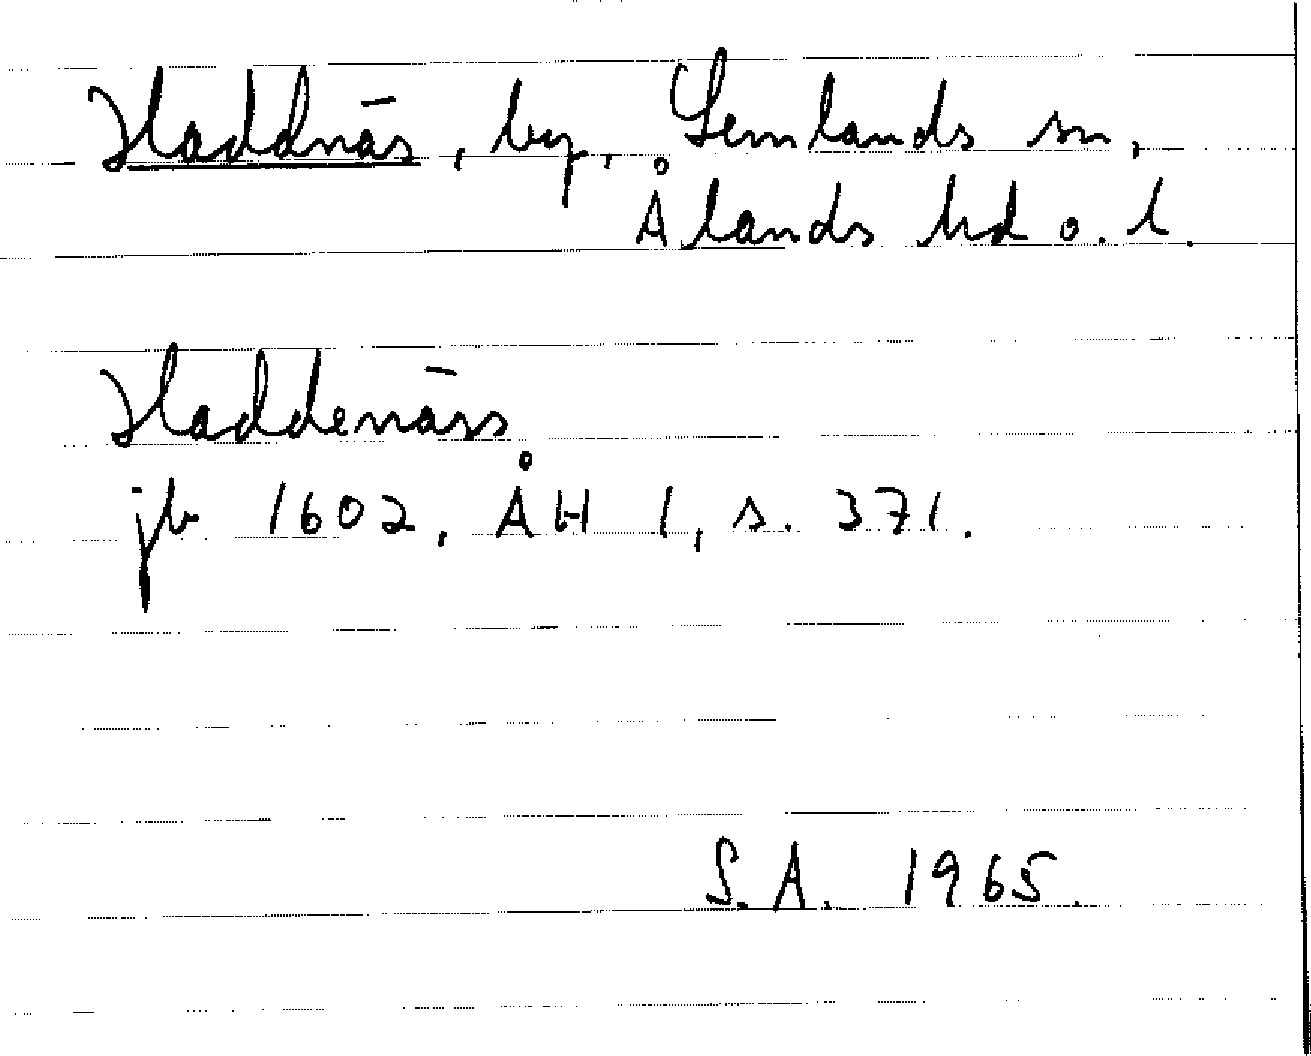 Haddnäs, by, Lemlands sn,
Ålands hd o. l.
Haddenäss
jb 1602, ÅH 1, s. 371.
S.A. 1965.